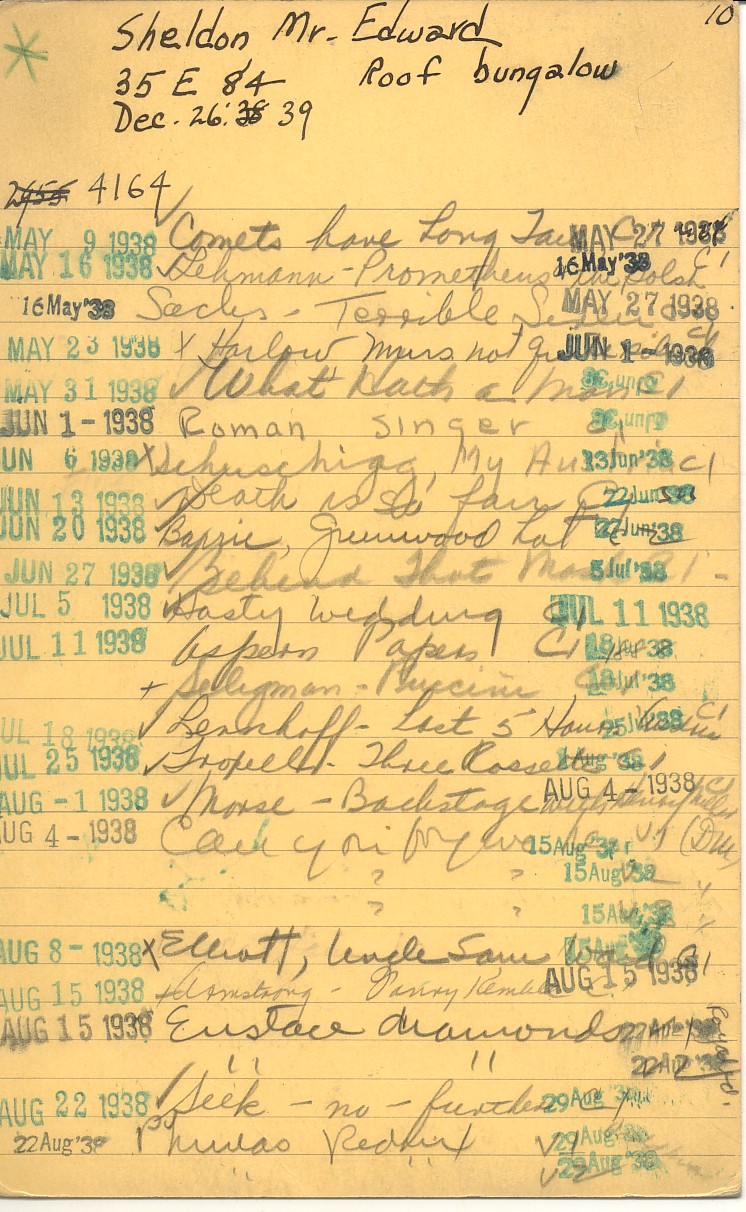 10
Sheldon Mr. Edward
35 E 84 Roof bungalow
Dec. 26. 38 39
2455 4164
MAY 9 1938 Comets have Long C1 MAY 27 1938
MAY 16 1938 Lehmann - Prometheus C1 16 May '38
16 May '38 Sachs - Terrible Siren C1 MAY 27 1938
MAY 23 1938 x Harlow murs not C1 JUN 1 - 1938
MAY 31 1938 What Hath a Man C1 6 Jun '38
JUN 1 - 1938 Roman singer C1 6 Jun '38
JUN 6 1938 x Schuschnigg, My Austria C1 13 Jun '38
JUN 13 1938 Death is so fair 22 Jun '38
JUN 20 1938 Barrie, Greenwood hat 27 Jun '38
JUN 27 1938 Behind That Mask C1 5 Jul '38
JUL 5 1938 Hasty wedding C1 JUL 11 1938
JUL 11 1938 Aspern Papers C1 18 Jul '38
+ Seligman - Puccini 18 Jul '38
JUL 18 1938 Lernhoff - Last 5 Hours C1 25 Jul '38
JUL 25 1938 Three Rossettis C1 1 Aug '38
AUG - 1 1938 Morse - Backstage with Henry Miller C1 AUG 4 - 1938
AUG 4 - 1938 Can you forgive V1 15 Aug '38
" " V2 15 Aug '38
" " 15 Aug '38
AUG 8 - 1938 x Elliott, Uncle Sam Ward C1 15 Aug '38
AUG 15 1938 + Armstrong - Fanny Kemble C1 AUG 15 1938
AUG 15 1938 Eustace diamonds 22 Aug '38
" " 22 Aug '38
AUG 22 1938 Seek - no - further C1 29 Aug '38
22 Aug '38 Phineas Redux V1 29 Aug '38
" " V2 29 Aug '38